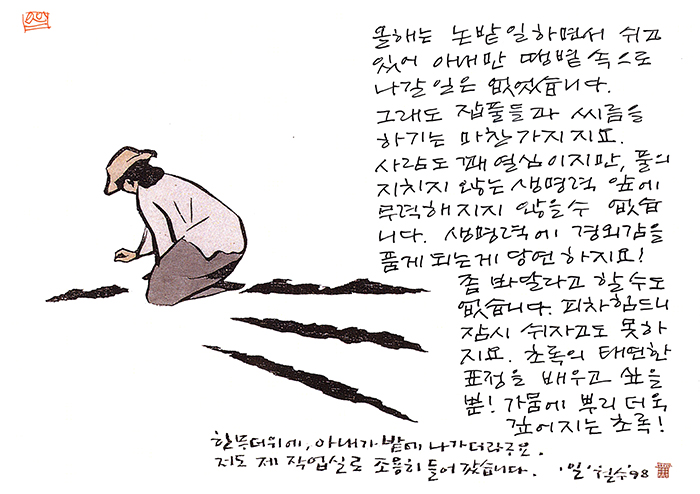 올해는 논밭일하면서 쉬고
있어 아내만 땡볕 속으로
나갈 일은 없었습니다.
그래도 잡풀들과 씨름을
하기는 마찬가지지요.
사람도 꽤 열심이지만, 풀의
지치지 않는 생명력 앞에
무력해지지 않을 수 없습
니다. 생명력에 경외감을
품게 되는게 당연하지요!
좀 봐달라고 할 수도
없습니다. 피차 힘드니
잠시 쉬자고도 못하
지요. 초록의 태연한
표정을 배우고 싶을
뿐! 가뭄에 뿌리 더욱
깊어지는 초록!
한 무더위에, 아내가 밭에 나가더라구요.
저도 제 작업실로 조용히 들어갔습니다. '일' 철수 '98